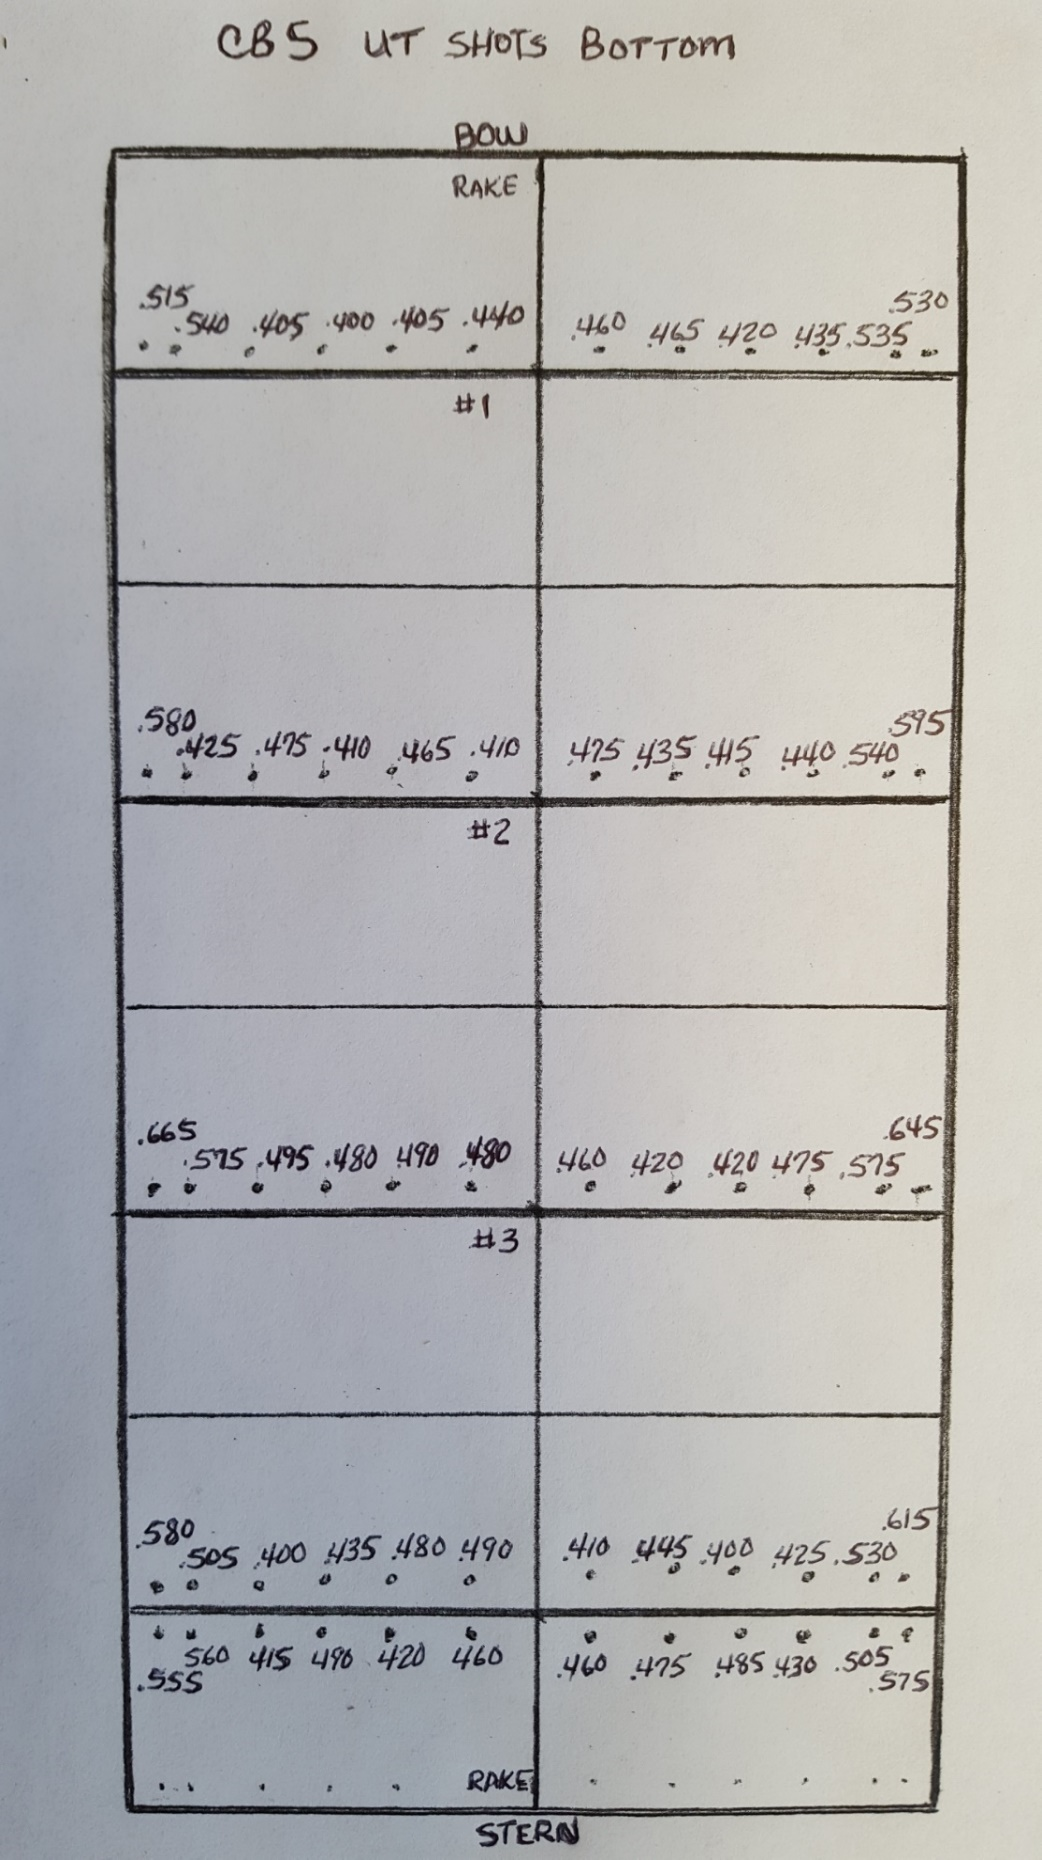 CB5 UT SHOTS BOTTOM
BOW
RAKE
.515 .530
.540 .405 .400 .405 .440 .460 .465 .420 .435 .535
#1
.580 .595
.425 .475 .410 .465 .410 .475 .435 .415 .440 .540
#2
.665 .645
.575 .495 .480 .490 .480 .460 .420 .420 .475 .575
#3
.580 .615
.505 .400 .435 .480 .490 .410 .445 .400 .425 .530
560 415 490 .420 460 .460 .475 .485 .430 .505
.555 .575
RAKE
STERN